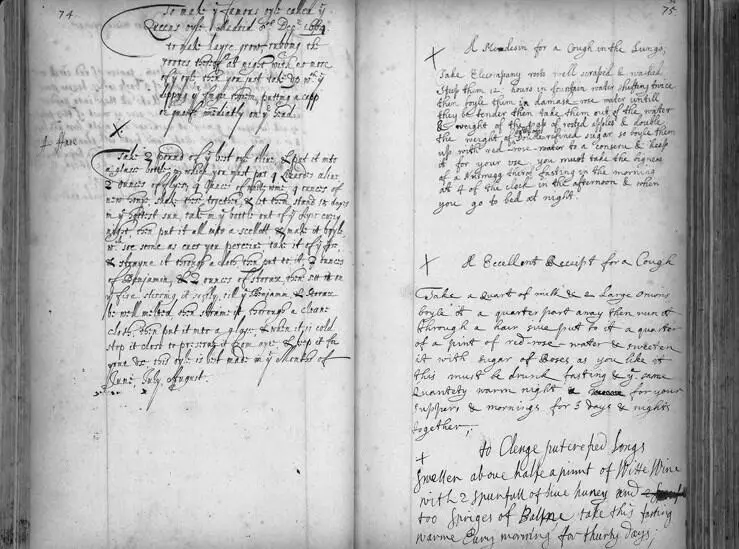 74
To make yᵉ famous oyle called yᵉ
Queens oyle
to make hayre grow, rubbing the
rootes thereof at night with no more
of yᵉ oyle then you just take up wᵗʰ yᵉ
dipping yᵉ finger therein, putting a capp
imediatly on yᵉ head.
X.
Haire
Take 2 pound of yᵉ best oyle olive, & put it into
a glass bottle, in which you must put 4
2 ounces of
new honye, shake these together, & let them stand 12 dayes
in yᵉ hottest sun, take in yᵉ bottle out of yᵉ every
night, then put it all into a scellett & make it boyle,
soe some as ever you perceive take it of yᵉ fire,
& strayne it through a cloth then put to it, 2 ounces
of Benjamin, & 2 ounces of Storax, then sett it on
yᵉ fire stirring it softly, till yᵉ Benjamin & Storax
be well melted, then straine it thorough a cleane
cloth, then put it into a glass, & when it is cold
stop it close to preserve it from ayre, & keep it for
your use. this oyle is best made in yᵉ Months of
June, July, August.
75
X
A Medesin for a Cough in the Lungs,
Take Elecampany roots well scraped & washed
steep them 12 hours in fountain water shifting twice
then boyle them in damask rose water untill
they be tender then take them out of the water
& weight of the pap of rosted apples & double
the weight of refined sugar so boyle them
up with red-rose-water to a conserve & keep
it for your use you must take the bigness
of a Nutmegg therof fasting in the morning
at 4 of the clock in the afternoon & when
you go to bed at night.
X
A Eccellent Receipt for a Cough
Take a Quart of milk & 2 Large onions
boyle it a quarter part away then run it
through a hair sive put to it a quarter
of a pint of red-rose water & sweeten
it with sugar of Roses as you like it
this must be drunk fasting & yᵉ same
Quantety warm night for your
suppers & mornings for 3 days & nights
together,
to Clenge puterefied Longs
X
Swellen above halfe a pinnt of Witte Wine
with 2 spunfull of live huney and
too spriges of Balme take this fasting
warme Every morning for thurty days